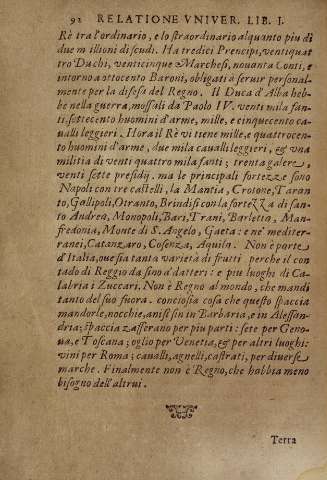 92 RELATIONE VNIVER. LIB. I.
Rè tra l'ordinario, e lo straordinario alquanto piu di
due milioni di scudi. Ha tredici Prencipi, ventiquat
tro Duchi, venticinque Marchesi, nouanta Conti, e
intorno a ottocento Baroni, obligati à seruir personal-
mente per la difesa del Regno. Il Duca d'Alba heb-
be nella guerra, mossali da Paolo IV. venti mila fan-
ti, settecento huomini d'arme, mille, e cinquecento ca-
ualli leggieri. Hora il Rè vi tene mille, e quattrocen-
to huomini d'arme, due mila caualli leggieri, & vna
militia di venti quattro mila fanti; trenta galere,
venti sette presidij. ma le principali fortezze sono
Napoli con tre castelli, la Mantia, Crotone, Taran
to, Gallipoli, Otranto, Brindisi con la fortezza di san-
to Andrea, Monopoli, Bari, Trani, Barletta, Man-
fredonia, Monte di S. Angelo, Gaeta: e ne' mediter-
ranei, Catanzaro, Cosenza, Aquila. Non è parte
d'Italia, oue sia tanta varietà di frutti perche il con
tado di Reggio da sino à datteri: e piu luoghi di Ca-
labria i Zuccari. Non è Regno al mondo, che mandi
tanto del suo fuora. conciosia cosa che questo spaccia
mandorle, nocchie, anisi sin in Barbaria, e in Alessan-
dria; spaccia zafferano per piu parti: sete per Geno-
ua, e Toscana; oglio per Venetia, & per altri luoghi:
vini per Roma; caualli, agnelli, castrati, per diuerse
marche. Finalmente non è Regno, che habbia meno
bisogno dell'altrui.
Terra